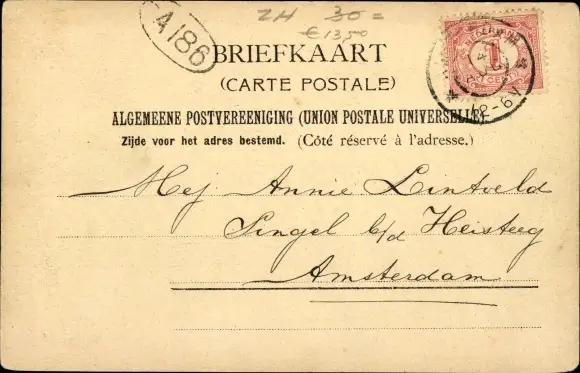 A186
ZH 30=
€ 13,50
BRIEFKAART
(CARTE POSTALE)
NEDERLAND
1
CENT
ALGEMEENE POSTVEREENIGING (UNION POSTALE UNIVERSELLE)
Zijde voor het adres bestemd. (Côté réservé à l'adresse.)
Mej Annie Lintveld
Singel b/d Heisteeg
Amsterdam